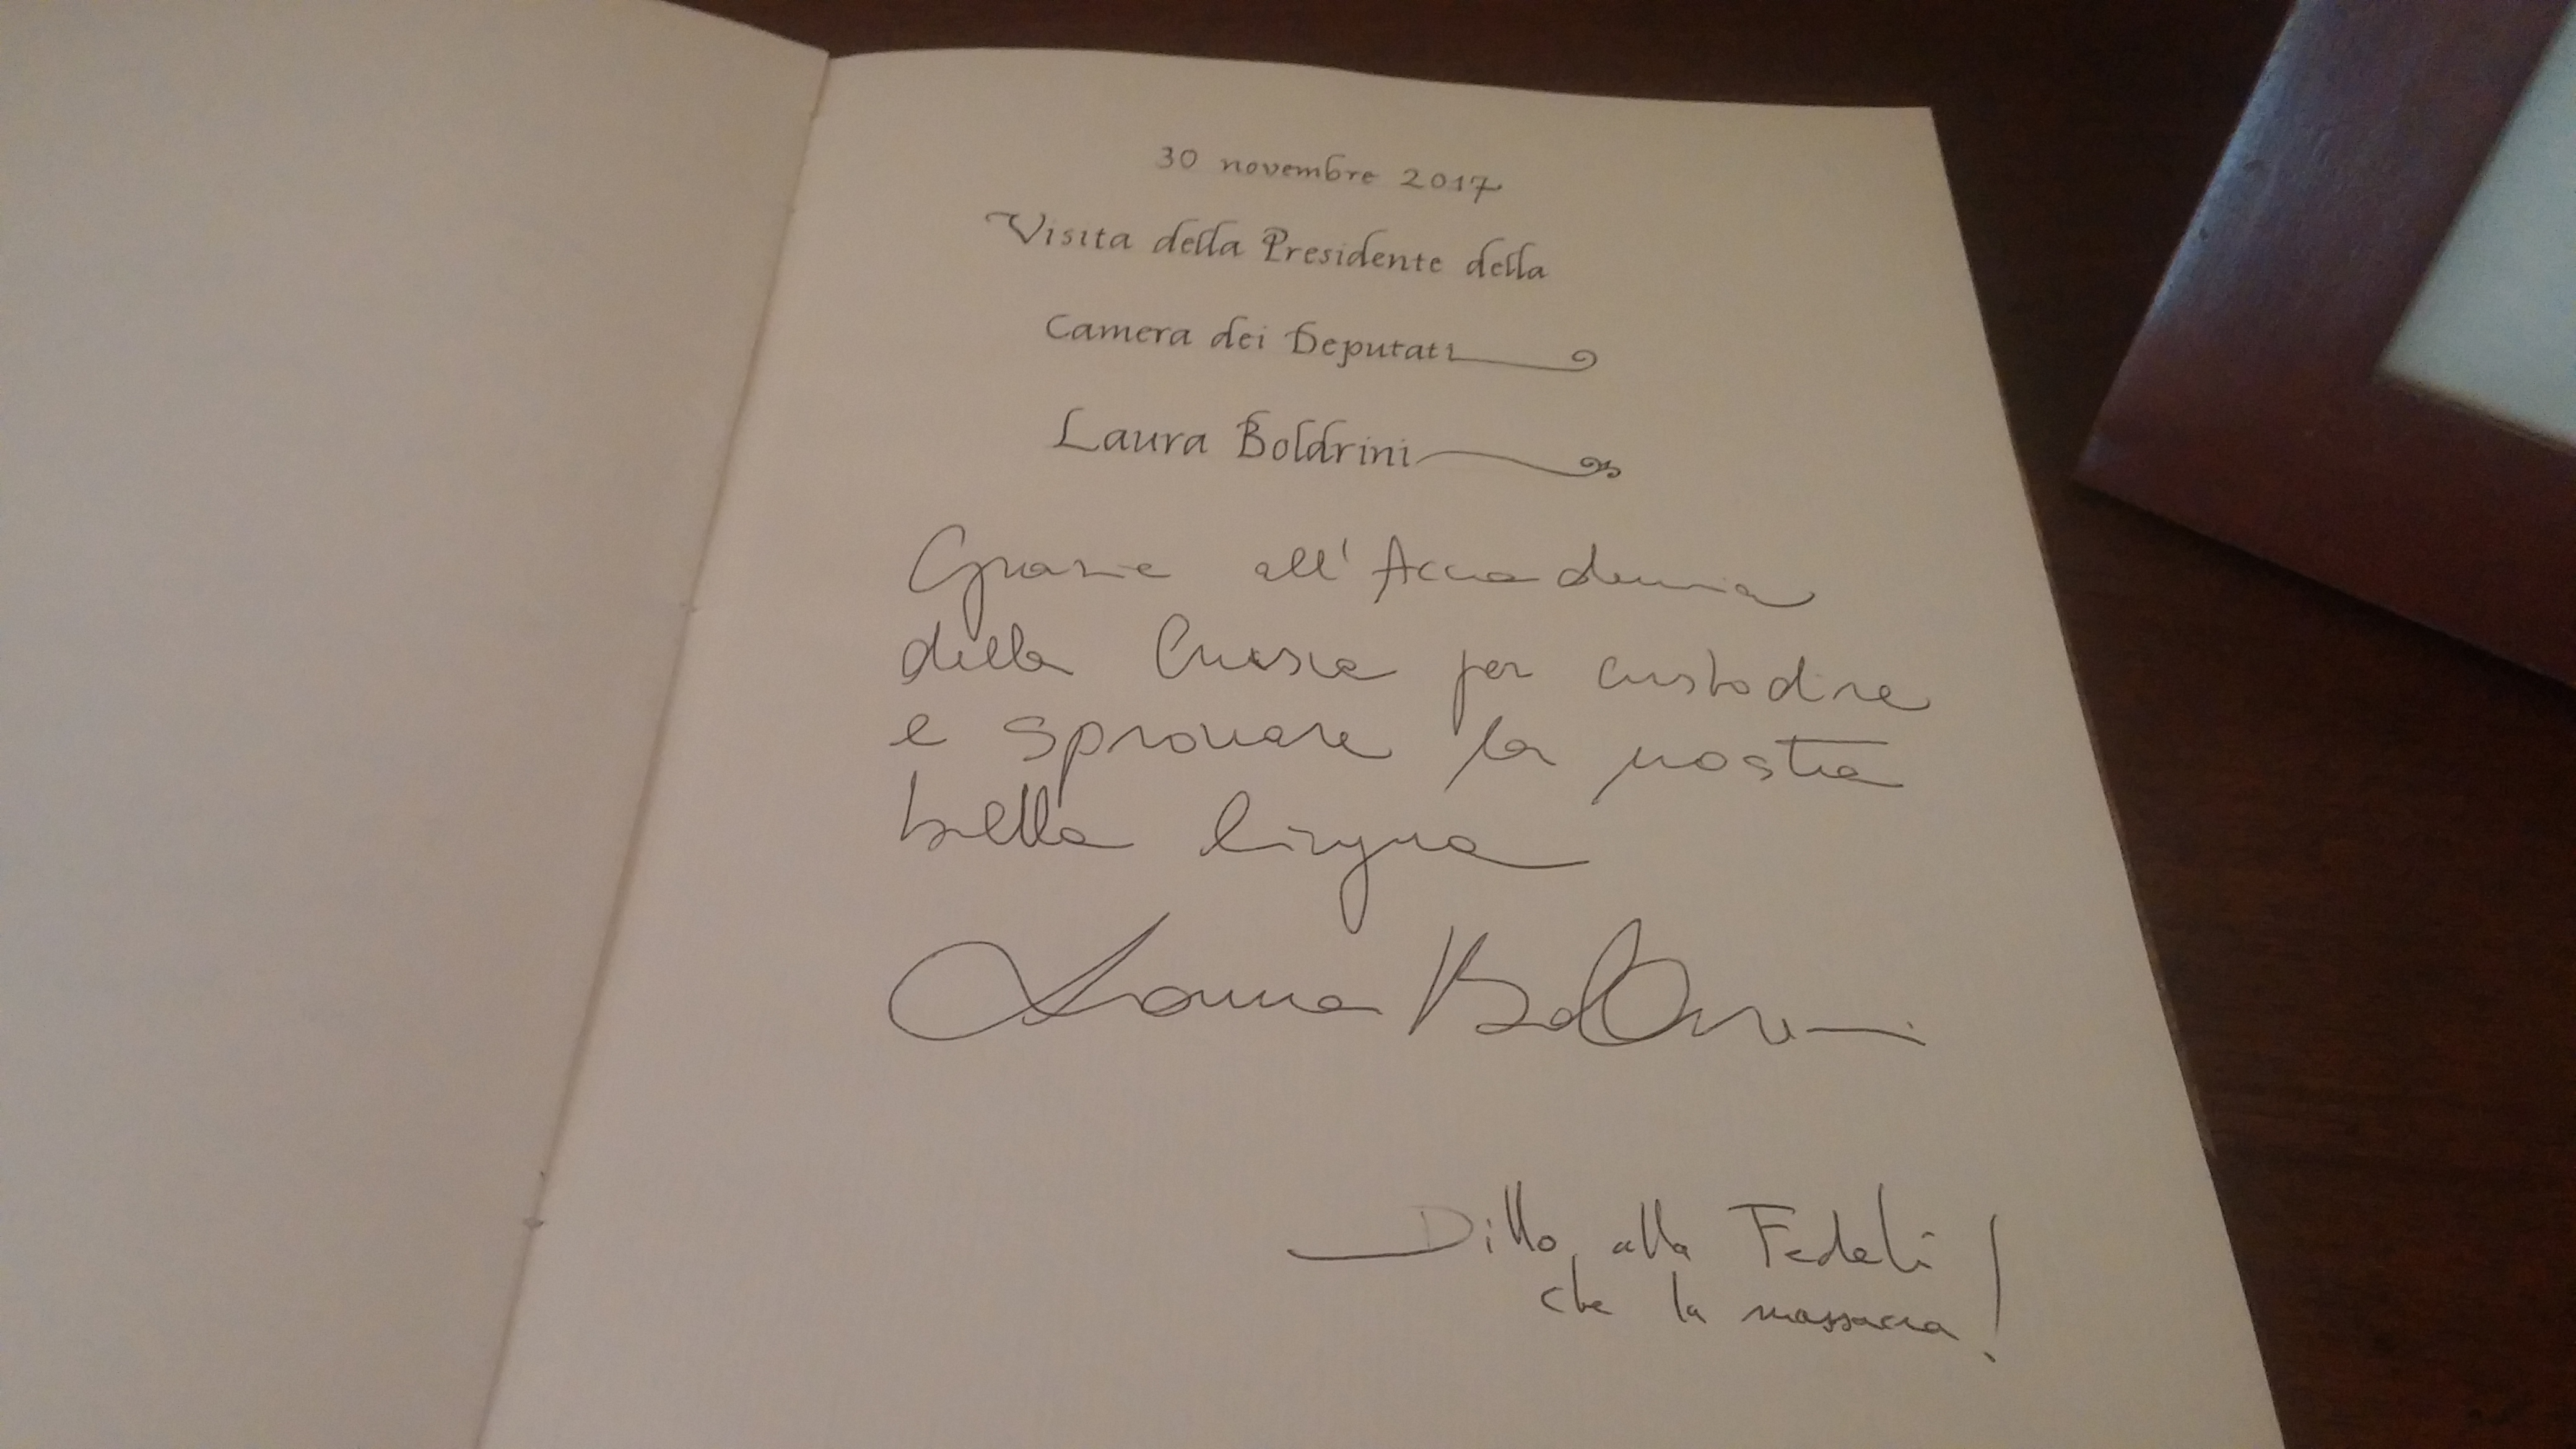 30 novembre 2017
Visita della Presidente della
Camera dei Deputati
Laura Boldrini
Grazie all'Accademia
della Crusca per custodire
e spronare la nostra
bella lingua
Laura Boldrini
Dillo alla Fedeli
che la massacra!